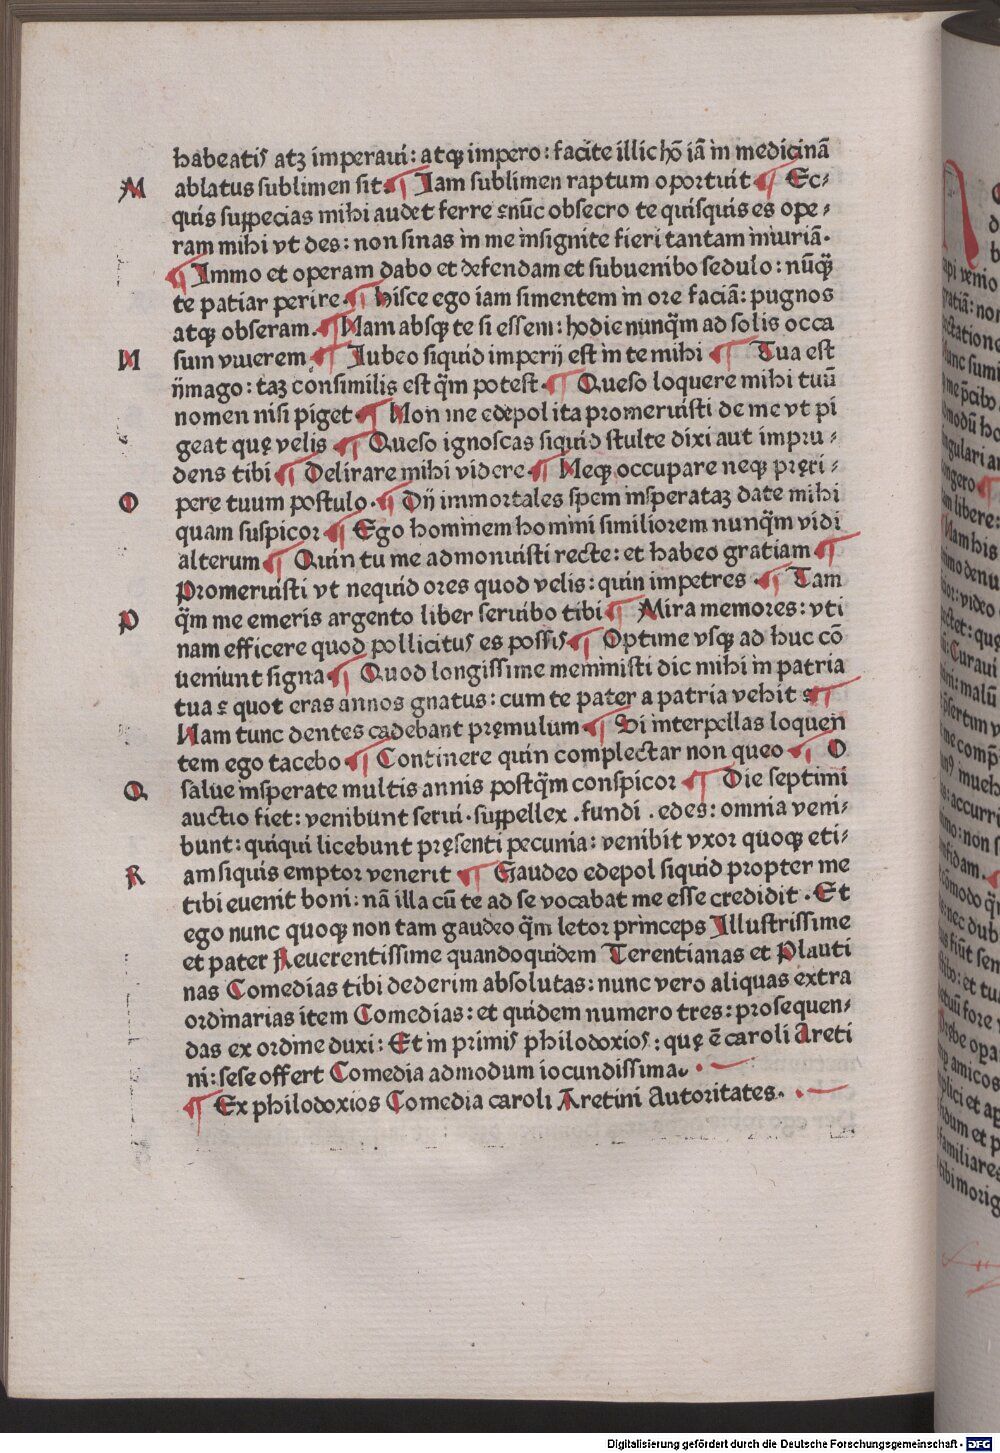 habeatis atꝫ imperaui: atqꝫ impero: facite illic hō iā in medicinā
M ablatus sublimen sit. ¶ Iam sublimen raptum oportuit ¶ Ec⸗
quis suppecias mihi audet ferre ꝛ nūc obsecro te quisquis es ope⸗
ram mihi vt des: non sinas in me insignite fieri tantam iniuriā.
¶ Immo et operam dabo et defendam et subuenibo sedulo: nūqꝫ̄
te patiar perire. ¶ hisce ego iam simentem in ore faciā: pugnos
atqꝫ obseram. ¶ Nam absqꝫ te si essem: hodie nunq̄m ad solis occa
N sum viuerem ¶ Iubeo siquid imperij est in te mihi ¶ Tua est
ijmago: taꝫ consimilis est q̄m potest. ¶ Queso loquere mihi tuū
nomen nisi piget. ¶ Non me edepol ita promeruisti de me vt pi
geat quę velis ¶ Queso ignoscas siquid stulte dixi aut impru⸗
dens tibi ¶ Delirare mihi videre ¶ Neqꝫ occupare neqꝫ pręri⸗
O pere tuum postulo. ¶ Dij immortales spem insperataꝫ date mihi
quam suspicor ¶ Ego hominem homini similiorem nunq̄m vidi
alterum ¶ Quin tu me admonuisti recte: et habeo gratiam ¶
Promeruisti vt nequid ores quod velis: quin impetres . ¶ Tam
P q̄m me emeris argento liber seruibo tibi ¶ Mira memores: vti
nam efficere quod pollicitus es possis ¶ Optume vsqꝫ ad huc cō
ueniunt signa. ¶ Quod longissime meministi dic mihi in patria
tua ꝛ quot eras annos gnatus: cum te pater a patria vehit ꝛ ¶
Nam tunc dentes cadebant pręmulum ¶ Si interpellas loquen
tem ego tacebo ¶ Continere quin complectar non queo ¶ O
Q salue insperate multis annis postq̄m conspicor ¶ Die septimi
auctio fiet: venibunt serui. suppellex . fundi . edes: omnia veni⸗
bunt: quiqui licebunt pręsenti pecunia: venibit vxor quoqꝫ eti⸗
R am siquis emptor venerit ¶ Gaudeo edepol siquid propter me
tibi euenit boni: nā illa cū te ad se vocabat me esse credidit . Et
ego nunc quoqꝫ non tam gaudeo q̄m letor princeps Illustrissime
et pater Reuerentissime quandoquidem Terentianas et Plauti
nas Comedias tibi dederim absolutas: nunc vero aliquas extra
ordinarias item Comedias: et quidem numero tres: prosequen⸗
das ex ordine duxi: Et in primis philodoxios: quę ē caroli Areti
ni: sese offert Comedia admodum iocundissima.
¶ Ex philodoxios Comedia caroli Aretini Autoritates.
Digitalisierung gefördert durch die Deutsche Forschungsgemeinschaft - DFG